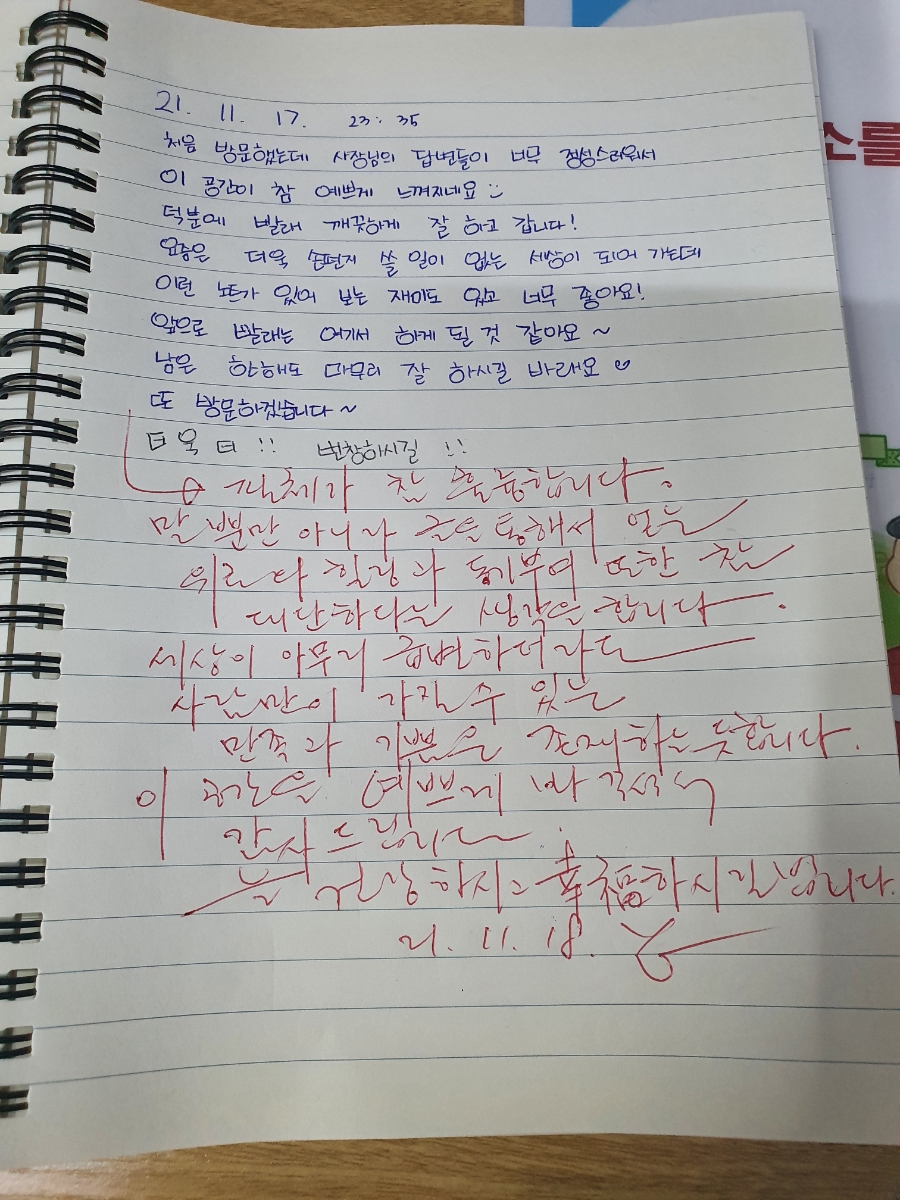 21. 11. 17. 23:35
처음 방문했는데 사장님의 답변들이 너무 정성스러워서
이 공간이 참 예쁘게 느껴지네요
덕분에 빨래 깨끗하게 잘 하고 갑니다!
요즘은 더욱 손편지 쓸 일이 없는 세상이 되어 가는데
이런 노트가 있어 보는 재미도 있고 너무 좋아요!
앞으로 빨래는 여기서 하게 될 것 같아요 ~
남은 한해도 마무리 잘 하시길 바래요
또 방문하겠습니다 ~
더욱 더 !! 번창하시길 !!
필체가 참 훌륭합니다.
말 뿐만 아니라 글을 통해서 얻는
위로나 힐링과 동기부여 또한 참
대단하다는 생각을 합니다.
세상이 아무리 급변하더라도
사람만이 가질수 있는
만족과 기쁨은 존재하는 듯합니다.
이 공간을 예쁘게 봐 주셔서
감사드립니다.
늘 건강하시고 幸福하시길 빕니다.
21. 11. 18.
소를